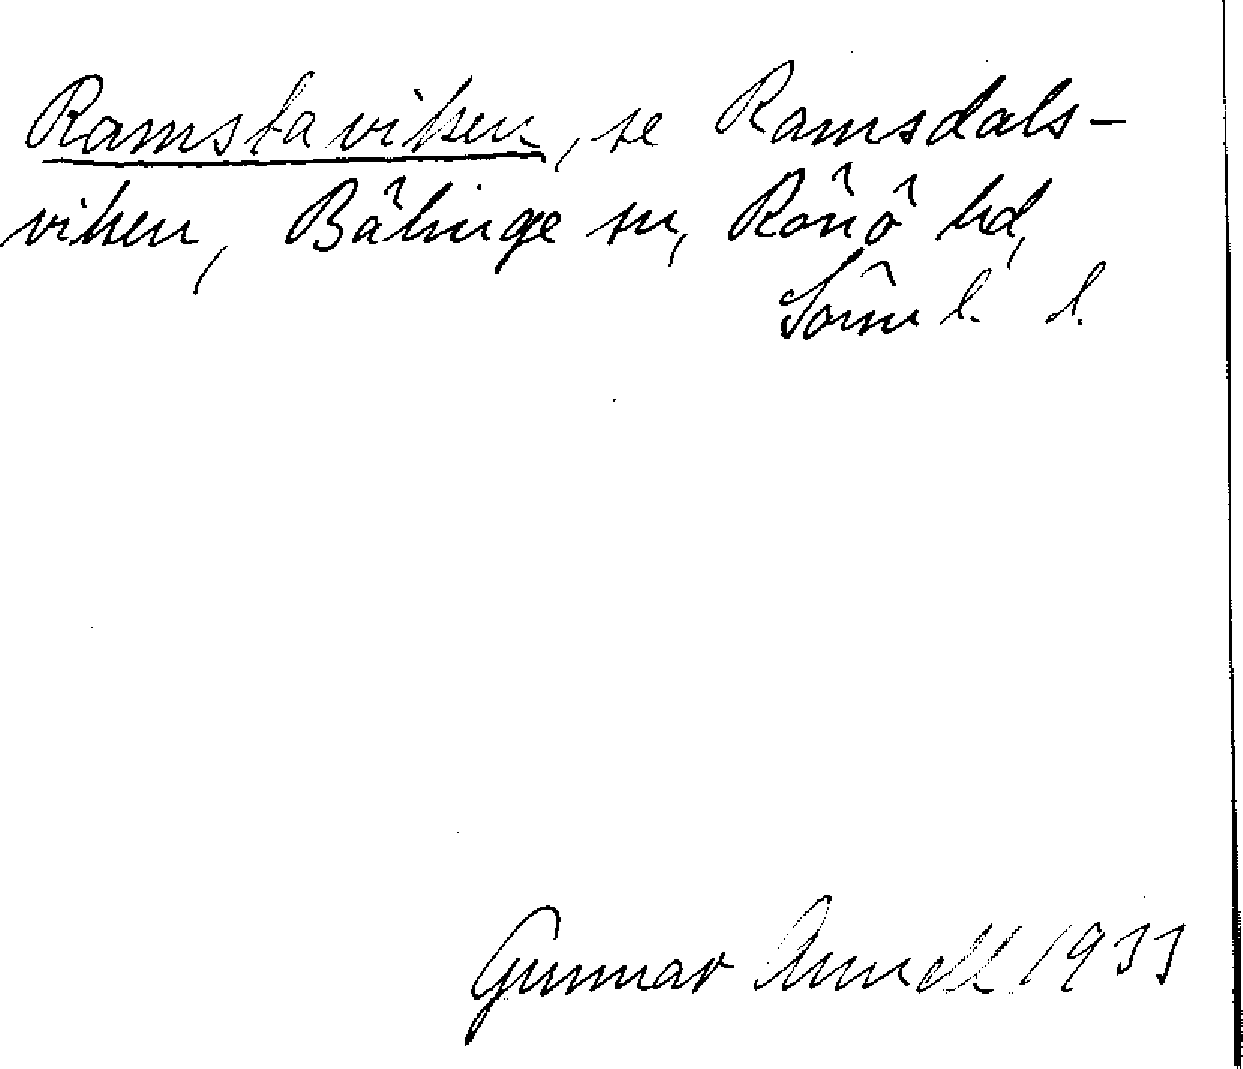 Ramstaviken, se Ramsdals-
viken, Bälinge sn, Rönö hd,
Sörml. l.
Gunnar 1933